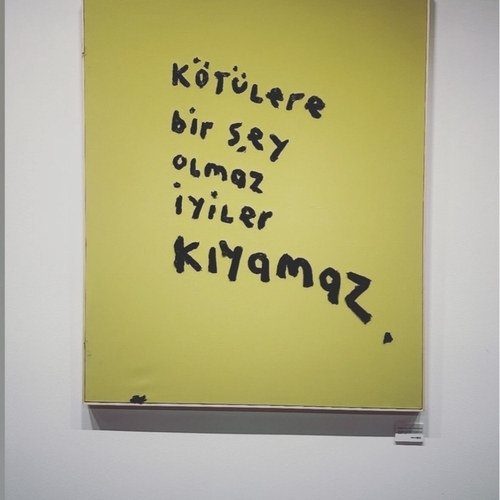 KÖTÜLere
bir şey
oLmaz
iyiLer
Kıyamaz.